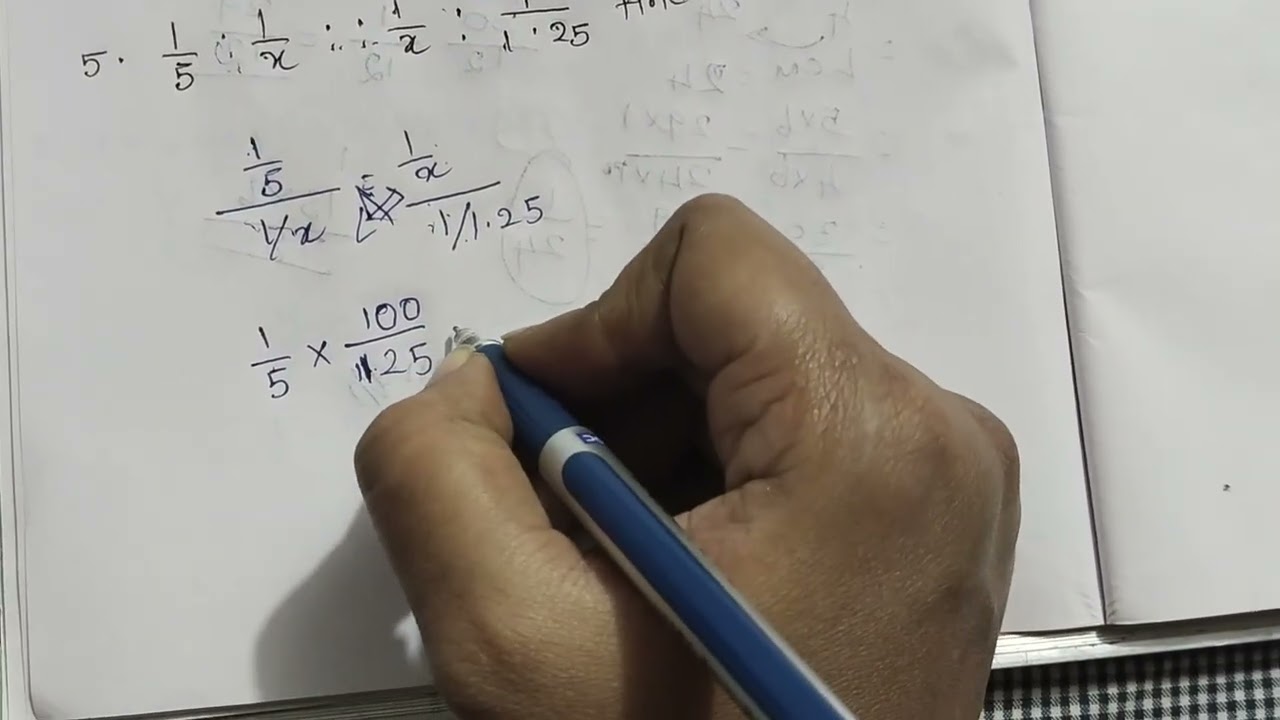 5. 1/5 : 1/x :: 1/x : 1/1.25
1/5 / 1/x = 1/x / 1/1.25
1/5 × 100/125